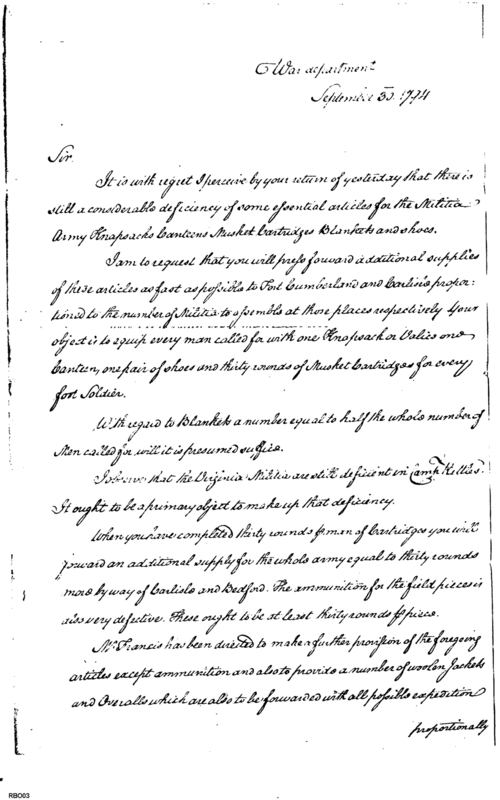 War department
September 30. 1794
Sir
It is with regret I perceive by your return of yesterday that there is
still a considerable deficiency of some essential articles for the Militia
Army Knapsacks Canteens Musket Cartridges Blankets and shoes.
I am to request that you will press forward additional supplies
of these articles as fast as possible to Fort Cumberland and Carlisle propor-
tioned to the number of Militia to assemble at those places respectively Your
object is to equip every man called for with one Knapsack or Valice one
Canteen, one pair of shoes and thirty rounds of Musket Cartridges for every
foot Soldier.
With regard to Blankets a number equal to half the whole number of
Men called for will it is presumed suffice.
I observe that the Virginia Militia are still deficient in Camp Kettles
It ought to be a primary object to make up that deficiency.
When you have completed thirty rounds man of Cartridges you will
forward an additional supply for the whole army equal to thirty rounds
more by way of Carlisle and Bedford. The ammunition for the field pieces is
also very defective. These ought to be at least thirty rounds piece.
Mr Francis has been directed to make a further provision of the foregoing
articles except ammunition and also to provide a number of woolen Jackets
and Overalls which are also to be forwarded with all possible expedition
proportionally
RBO03